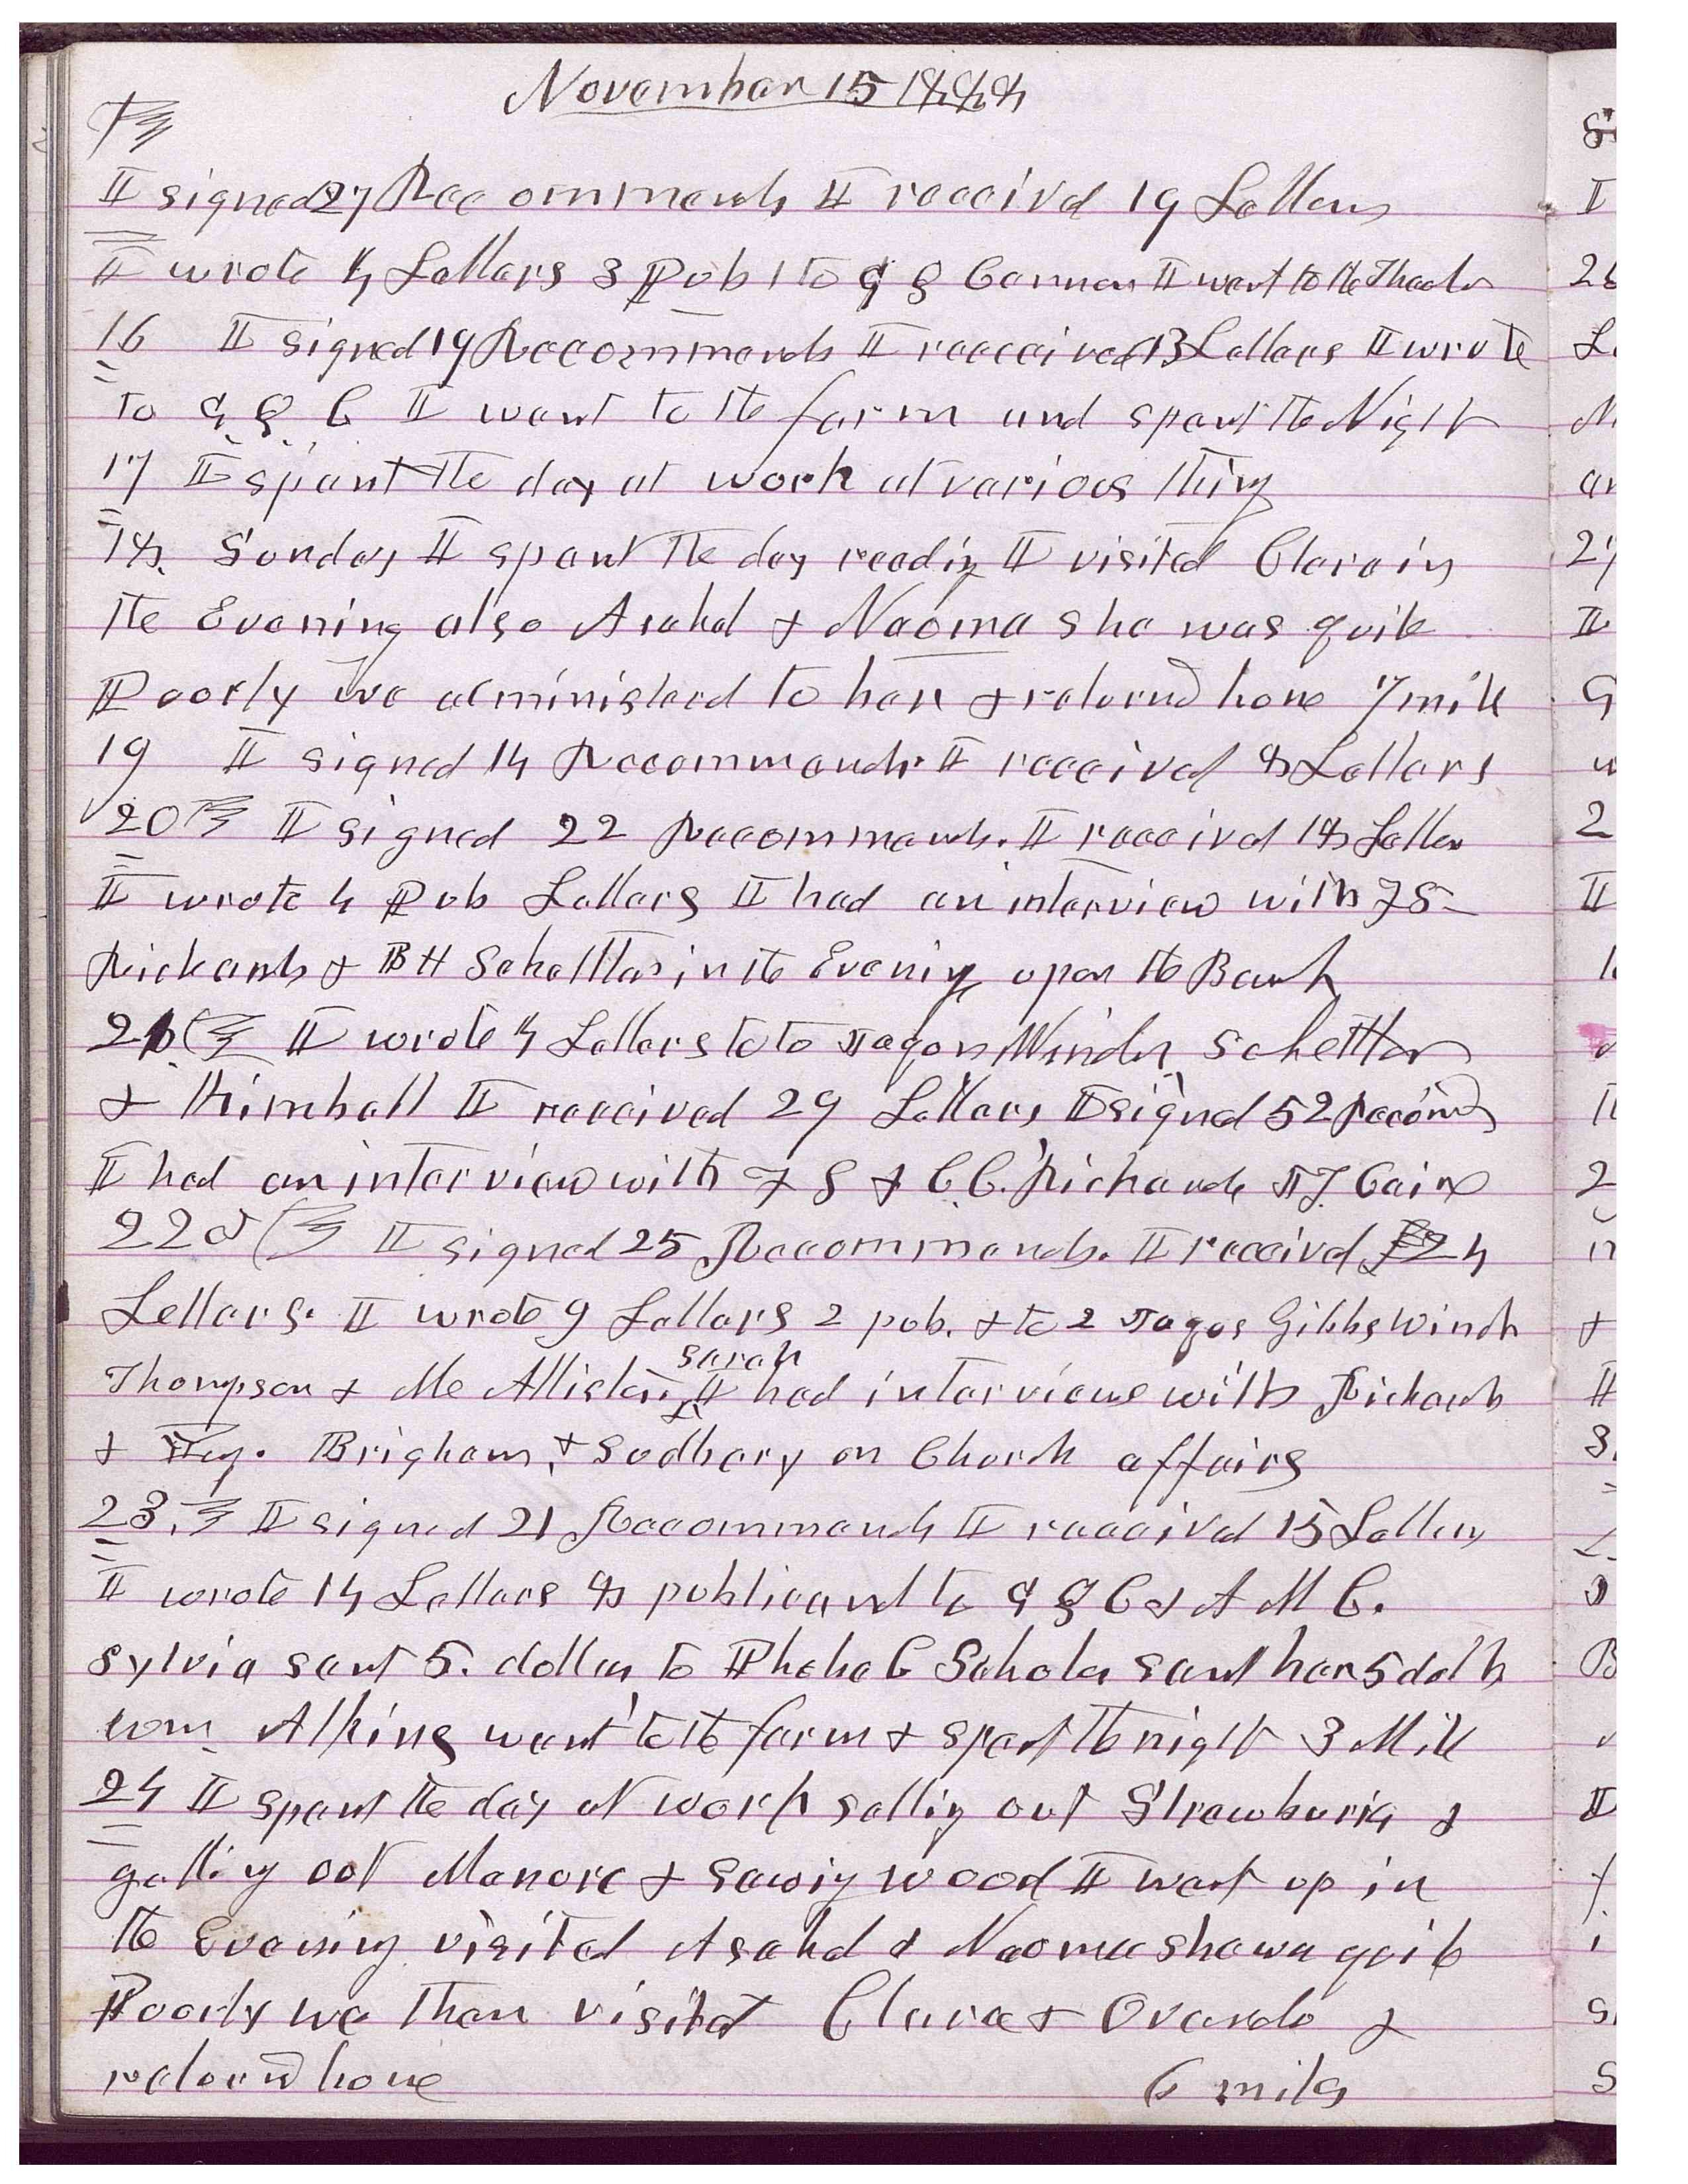 November 15 1888
I signed 27 Recommends I received 19 Letters
I wrote 4 Letters 3 Pub 1 to G Q Cannon I went to the Theater
16 I signed 19 Recommends I recceived 13 Letters I wrote
to G Q C I went to the farm and spent the Night
17 I spent the day at work at various thing
18. Sunday I spent the day reading I visited Clara in
the Evening also Asahel & Naoma she was quite
Poorly we administerd to her & returnd home 7 mile
19 I signed 14 Recommends I received 8 Letters
20 I signed 22 Recommends. I received 18 Letter
I wrote 4 Pub Letters I had an interview with F S
Richards & B H Schettler in the Evening upon the Bank
21 I wrote 4 Letters to to Teagon Winder Schettler
& Kimball I received 29 Letters I signed 52 Recomds
I had an interview with F S & C C. Richards & J. T. Cain
22d I signed 25 Recommends. I received 24
Letters. I wrote 9 Letters 2 pub. & to 2 Gibbs Winder
Thompson & Mc Allister, Sarah I had interviews with Richards
& Brigham, & Sudbery on Church affairs
23. I signed 21 Recommends I received 15 Letters
I wrote 14 Letters 8 public and to G Q C & A M C.
Sylvia sent 5. dollars to Phebe C Scholes sent her 5 dolls
wm Atkins went to the farm & spent the night 3 Mile
24 I spent the day at work setting out Strawburies &
getting out Manure & sawing wood I went up in
the Evening visited Asahel & Naoma she was quite
Poorly we then visited Clara & Ovando &
returnd home 6 miles